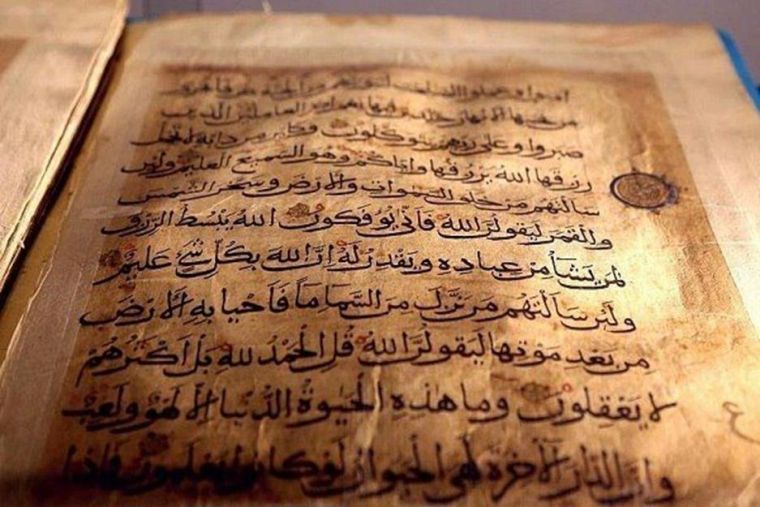 امنوا وعملوا الصالحات لنبوئنهم من الجنة غرفا تجرى
من تحتها الانهار خالدين فيها نعم اجر العاملين الذين
صبروا وعلى ربهم يتوكلون وكاين من دابة لا تحمل
رزقها الله يرزقها واياكم وهو السميع العليم ولئن
سالتهم من خلق السموات والارض وسخر الشمس
والقمر ليقولن الله فانى يوفكون الله يبسط الرزق
لمن يشا من عباده ويقدر له ان الله بكل شئ عليم
ولئن سالتهم من نزل من السما ما فاحيا به الارض
من بعد موتها ليقولن الله قل الحمد لله بل اكثرهم
لا يعقلون وما هذه الحيوة الدنيا الا لهو ولعب
وان الدار الاخرة لهى الحيوان لو كانوا يعلمون فاذا
ع